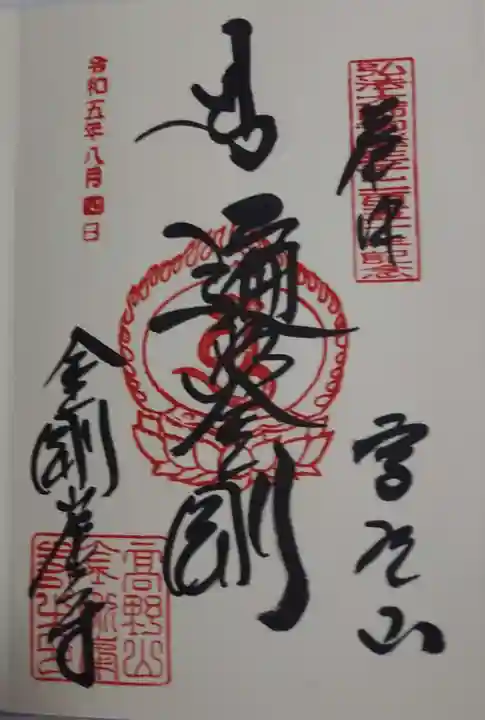 弘法大師御誕生千二百五十年記念
奉拝
高野山
遍照金剛
令和五年八月四日
金剛峯寺
高野山